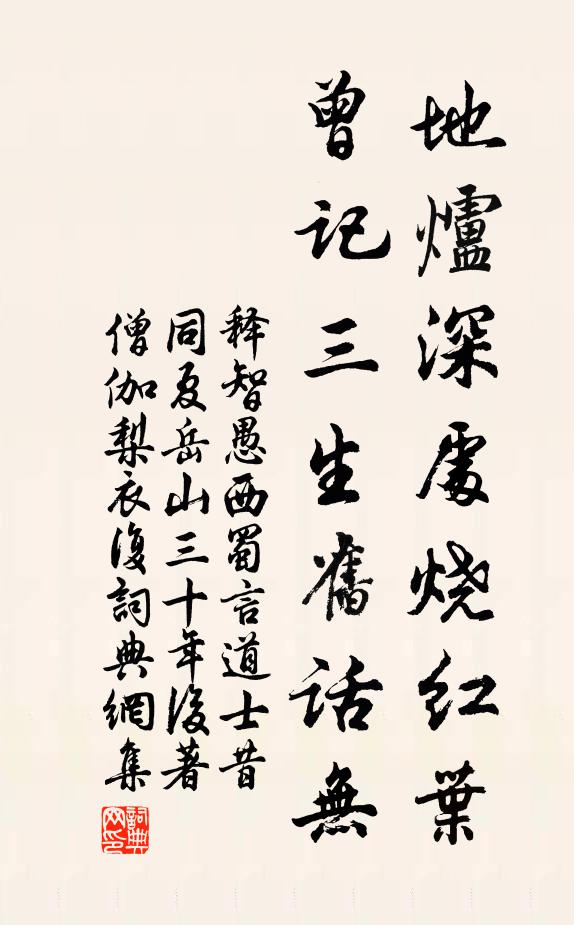 地爐深處烧红葉
曾记三生舊话無
释智愚西蜀言道士昔
同夏岳山三十年後著
僧伽梨衣復詞典網集
詞典网印